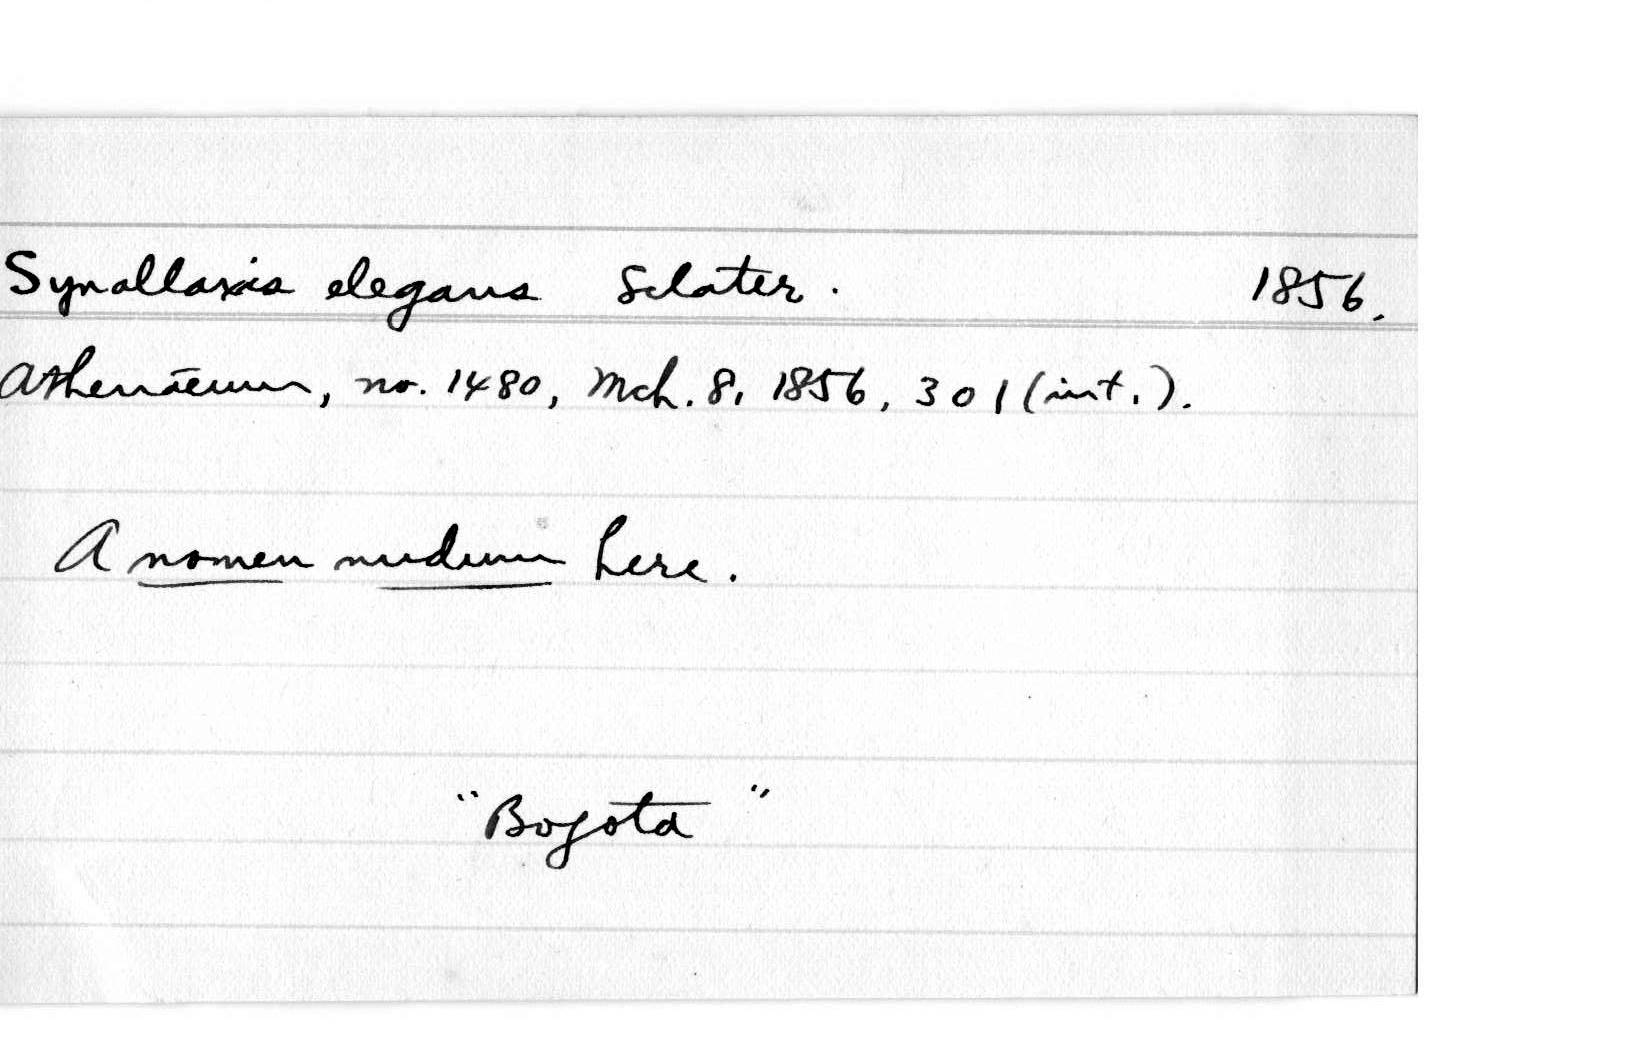 Synallaxis elegans Sclater. 1856.
Athenaeum, no. 1480, Mch. 8, 1856, 301 (int.).
A nomen nudum here.
"Bogota"